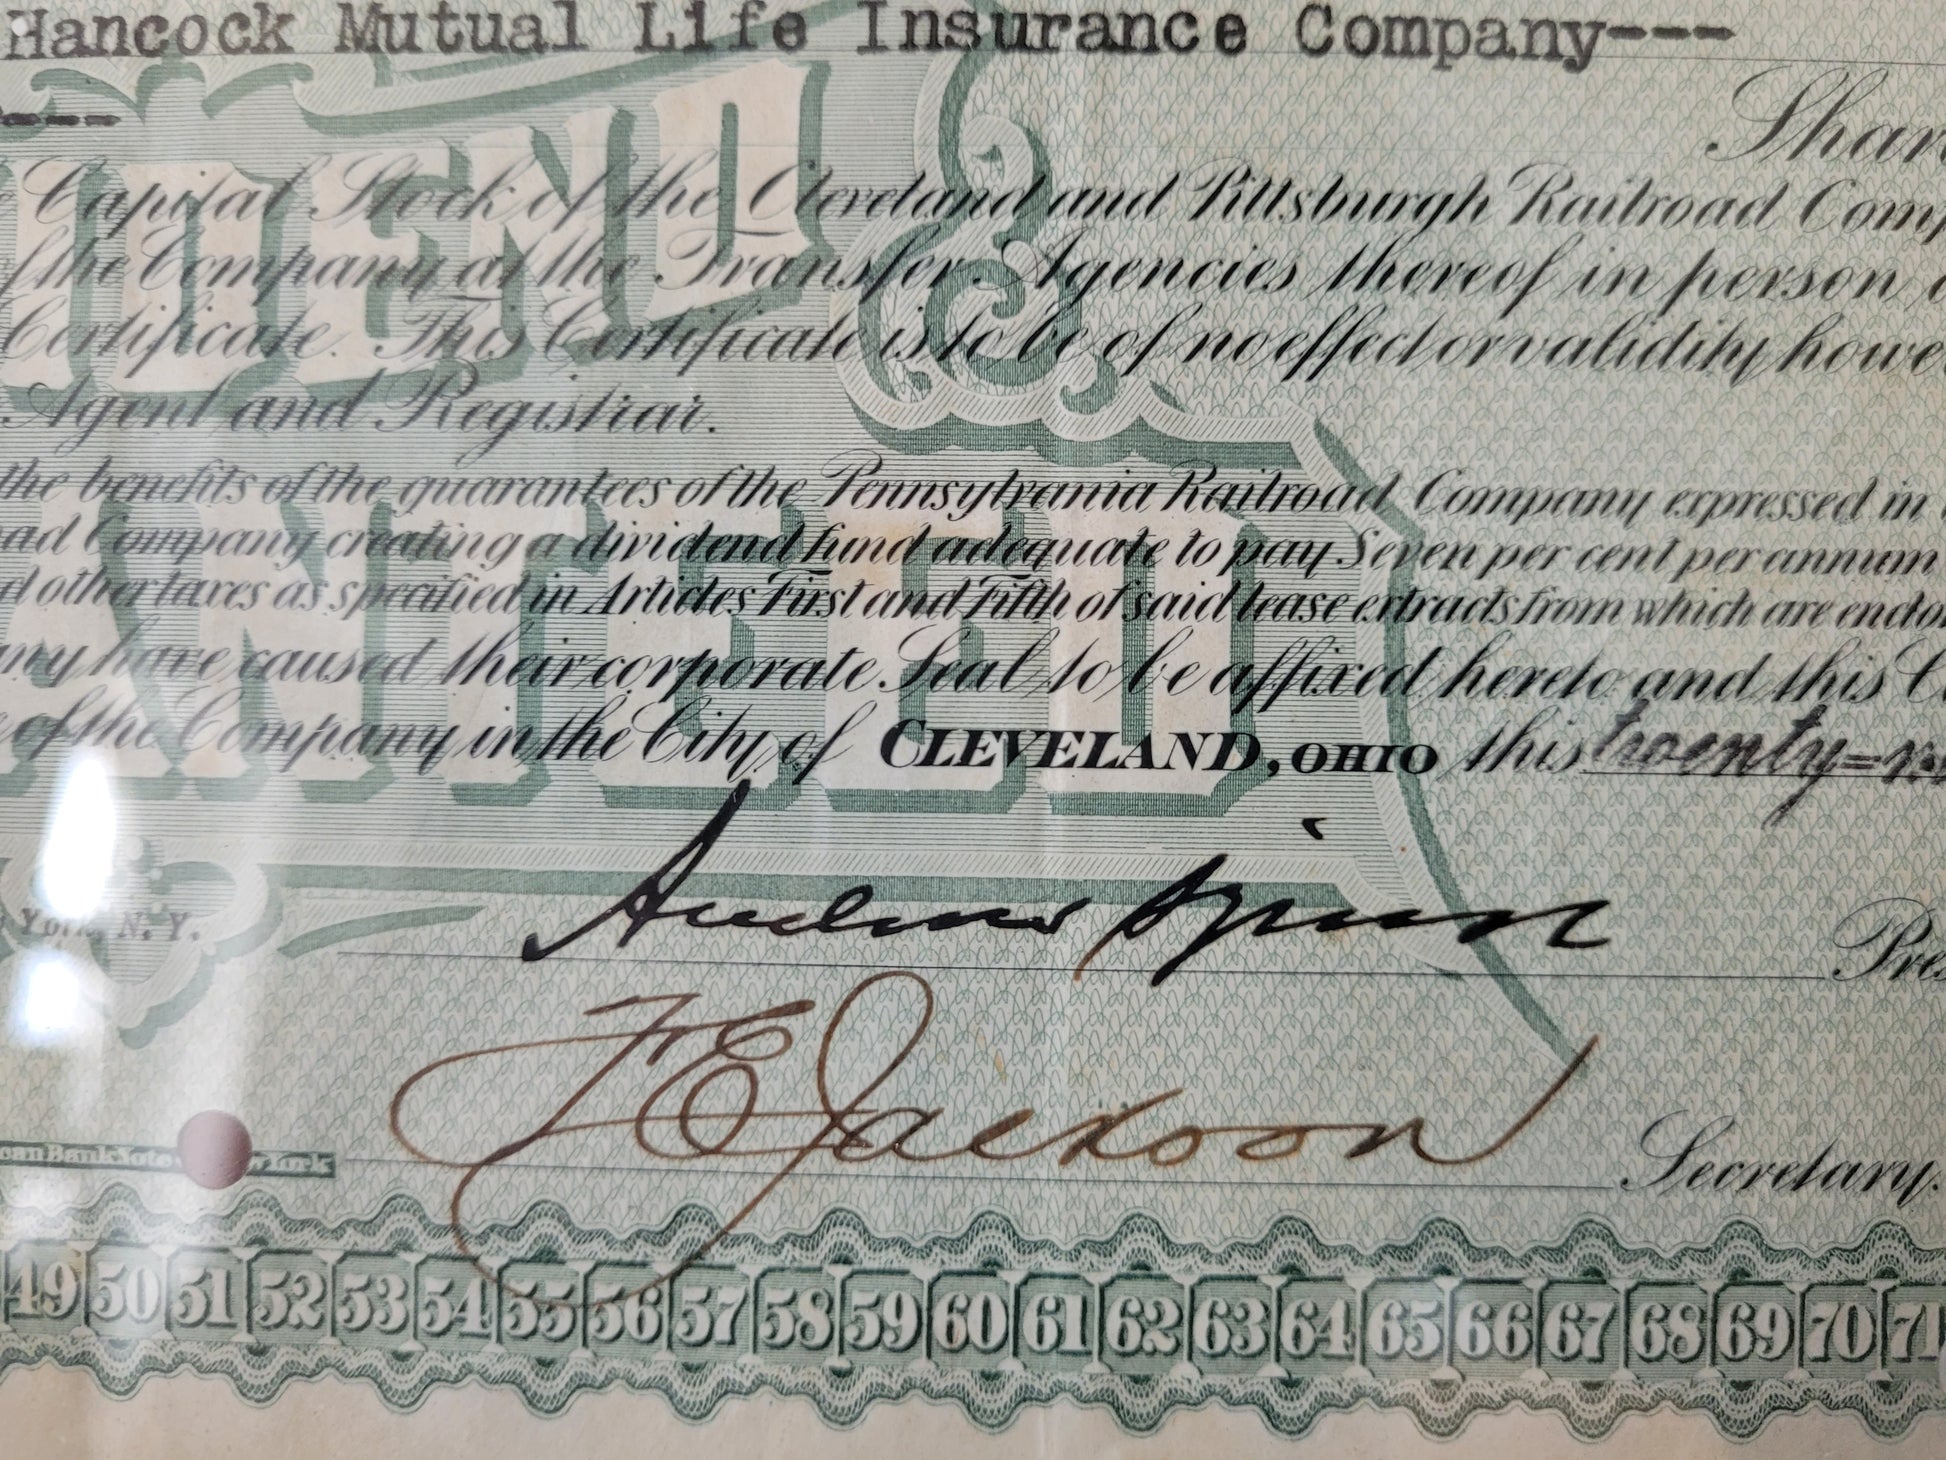 Hancock Mutual Life Insurance Company---
Shar
Capital Stock of the Cleveland and Pittsburgh Railroad Comp
of the Company at the Transfer Agencies thereof in person
Certificate. This Certificate is to be of no effect or validity howe
Agent and Registrar.
the benefits of the guarantees of the Pennsylvania Railroad Company expressed in
ad Company creating a dividend fund adequate to pay Seven per cent per annum
d other taxes as specified in Articles First and Fifth of said lease extracts from which are endo
ny have caused their corporate Seal to be affixed hereto and this C
of the Company in the City of CLEVELAND, OHIO this twenty=
IDEND &
ANTEED
York, N.Y.
Pres
F E Jackson
Secretary.
can Bank Note York
49 50 51 52 53 54 55 56 57 58 59 60 61 62 63 64 65 66 67 68 69 70 71